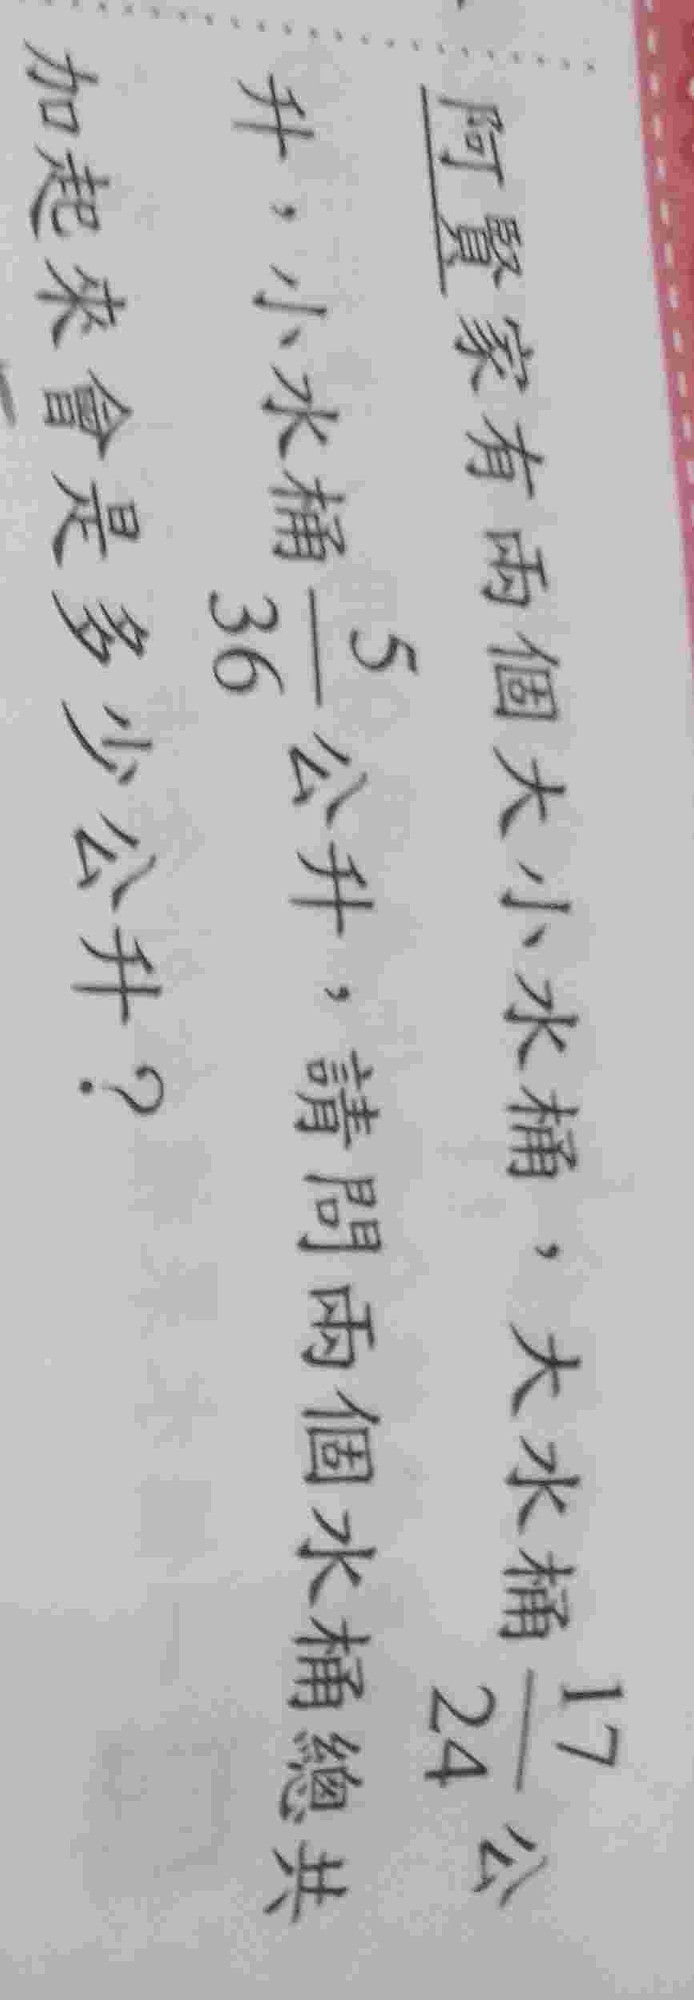 阿賢家有兩個大小水桶，大水桶 17/24 公
升，小水桶 5/36 公升，請問兩個水桶總共
加起來會是多少公升？